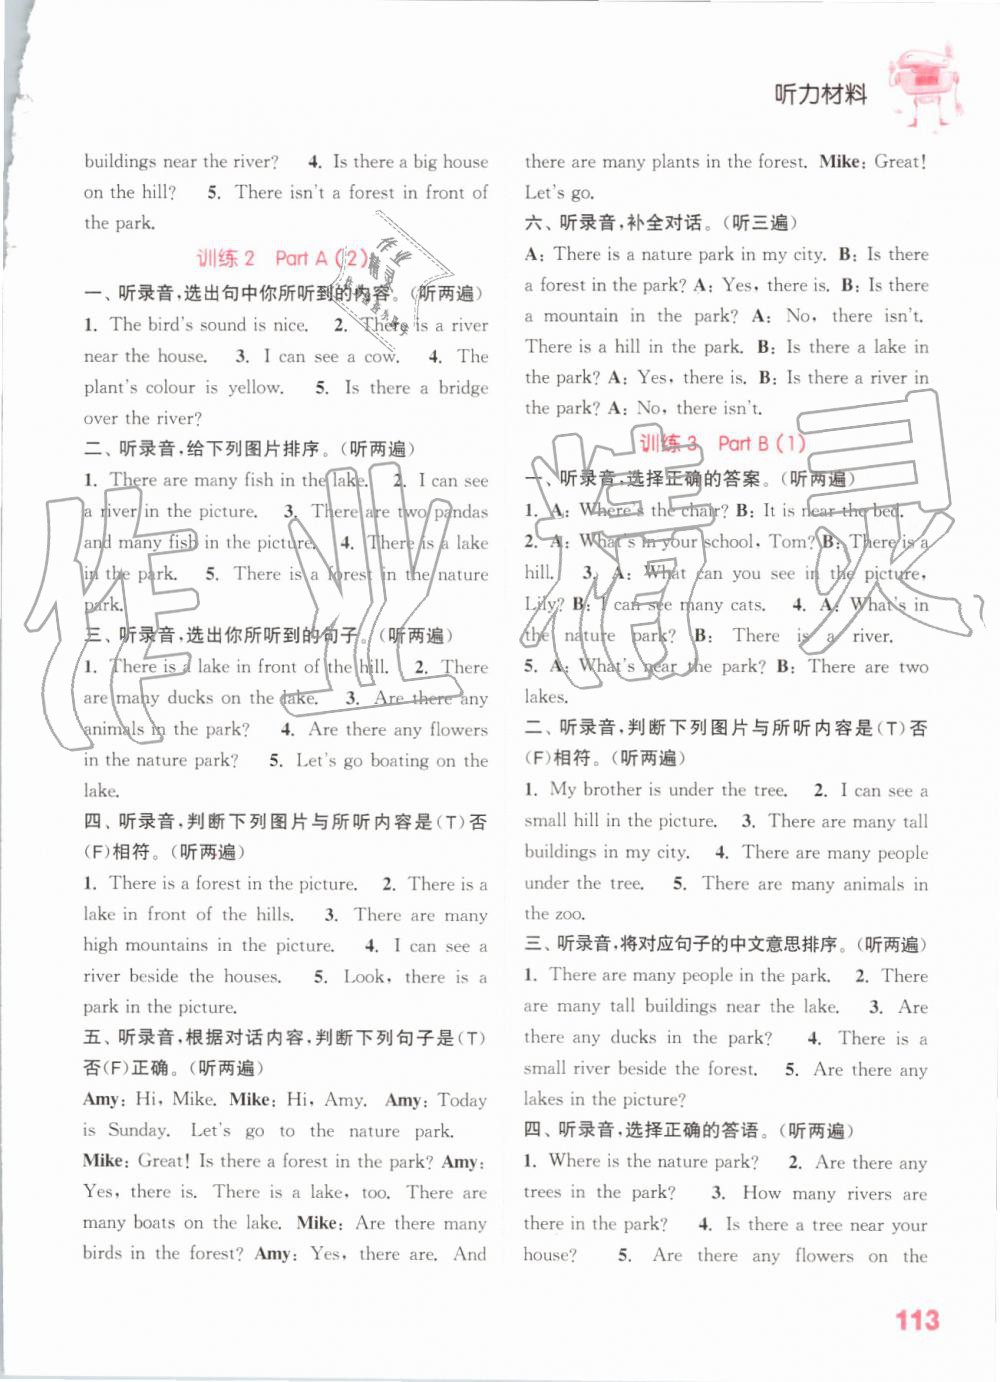 听力材料
buildings near the river? 4. Is there a big house
on the hill? 5. There isn't a forest in front of
the park.
训练2 Part A (2)
一、听录音,选出句中你所听到的内容。(听两遍)
1. The bird's sound is nice. 2. There is a river
near the house. 3. I can see a cow. 4. The
plant's colour is yellow. 5. Is there a bridge
over the river?
二、听录音,给下列图片排序。(听两遍)
1. There are many fish in the lake. 2. I can see
a river in the picture. 3. There are two pandas
and many fish in the picture. 4. There is a lake
in the park. 5. There is a forest in the nature
park.
三、听录音,选出你所听到的句子。(听两遍)
1. There is a lake in front of the hill. 2. There
are many ducks on the lake. 3. Are there any
animals in the park? 4. Are there any flowers
in the nature park? 5. Let's go boating on the
lake.
四、听录音,判断下列图片与所听内容是(T)否
(F)相符。(听两遍)
1. There is a forest in the picture. 2. There is a
lake in front of the hills. 3. There are many
high mountains in the picture. 4. I can see a
river beside the houses. 5. Look, there is a
park in the picture.
五、听录音,根据对话内容,判断下列句子是(T)
否(F)正确。(听两遍)
Amy: Hi, Mike. Mike: Hi, Amy. Amy: Today
is Sunday. Let's go to the nature park.
Mike: Great! Is there a forest in the park? Amy:
Yes, there is. There is a lake, too. There are
many boats on the lake. Mike: Are there many
birds in the forest? Amy: Yes, there are. And
there are many plants in the forest. Mike: Great!
Let's go.
六、听录音,补全对话。(听三遍)
A: There is a nature park in my city. B: Is there a
forest in the park? A: Yes, there is. B: Is there
a mountain in the park? A: No, there isn't.
There is a hill in the park. B: Is there a lake in
the park? A: Yes, there is. B: Is there a river in
the park? A: No, there isn't.
训练3 Part B (1)
一、听录音,选择正确的答案。(听两遍)
1. A: Where's the chair? B: It is near the bed.
2. A: What's in your school, Tom? B: There is a
hill. 3. A: What can you see in the picture,
Lily? B: I can see many cats. 4. A: What's in
the nature park? B: There is a river.
5. A: What's near the park? B: There are two
lakes.
二、听录音,判断下列图片与所听内容是(T)否
(F)相符。(听两遍)
1. My brother is under the tree. 2. I can see a
small hill in the picture. 3. There are many tall
buildings in my city. 4. There are many people
under the tree. 5. There are many animals in
the zoo.
三、听录音,将对应句子的中文意思排序。(听两遍)
1. There are many people in the park. 2. There
are many tall buildings near the lake. 3. Are
there any ducks in the park? 4. There is a
small river beside the forest. 5. Are there any
lakes in the picture?
四、听录音,选择正确的答语。(听两遍)
1. Where is the nature park? 2. Are there any
trees in the park? 3. How many rivers are
there in the park? 4. Is there a tree near your
house? 5. Are there any flowers on the
113
作业精灵
作业
精灵